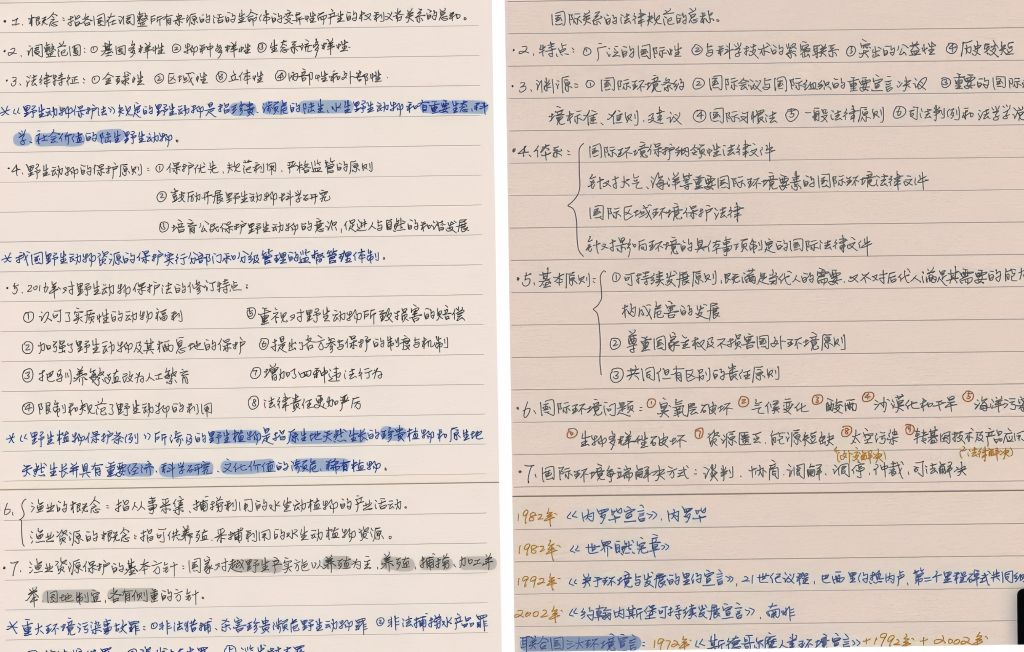 ·1. 概念：指各国在调整所有来源的活的生命体的变异性而产生的权利义务关系的总和。
·2. 调整范围：①基因多样性 ②物种多样性 ③生态系统多样性
·3. 法律特征：①全球性 ②区域性 ③立体性 ④内部性和外部性.
*《野生动物保护法》规定的野生动物是指珍贵、濒危的陆生、水生野生动物和有重要生态、科
学、社会价值的陆生野生动物。
·4. 野生动物的保护原则：①保护优先、规范利用、严格监管的原则
②鼓励开展野生动物科学研究
③培育公民保护野生动物的意识,促进人与自然的和谐发展
*我国野生动物资源的保护实行分部门和分级管理的监督管理体制。
·5. 2016年对野生动物保护法的修订特点：
①认可了实质性的动物福利 ⑤重视对野生动物所致损害的赔偿
②加强了野生动物及其栖息地的保护 ⑥提出了各方参与保护的制度与机制
③把驯养繁殖改为人工繁育 ⑦增加了四种违法行为
④限制和规范了野生动物的利用 ⑧法律责任更加严厉
*《野生植物保护条例》所涉及的野生植物是指原生地天然生长的珍贵植物和原生地
天然生长并具有重要经济、科学研究、文化价值的濒危、稀有植物.
6. 渔业的概念：指从事采集、捕捞利用的水生动植物的产业活动.
渔业资源的概念：指可供养殖、采捕利用的水生动植物资源。
·7. 渔业资源保护的基本方针：国家对渔业生产实施以养殖为主，养殖、捕捞、加工并
举 因地制宜，各有侧重的方针.
*重大环境污染事故罪：①非法猎捕、杀害珍贵濒危野生动物罪 ②非法捕捞水产品罪
国际关系的法律规范的总称。
·2. 特点：①广泛的国际性 ②与科学技术的紧密联系 ③突出的公益性 ④历史较短
·3. 渊源：①国际环境条约 ②国际会议与国际组织的重要宣言、决议 ③重要的国际
境标准、准则、建议 ④国际习惯法 ⑤一般法律原则 ⑥司法判例和法学学说
·4. 体系：国际环境保护纲领性法律文件
针对大气、海洋等重要国际环境要素的国际环境法律文件
国际区域环境保护法律
针对保护环境的具体事项制定的国际法律文件
·5. 基本原则：①可持续发展原则,既满足当代人的需要,又不对后代人满足其需要的能力
构成危害的发展
②尊重国家主权及不损害国外环境原则
③共同但有区别的责任原则
·6. 国际环境问题：①臭氧层破坏 ②气候变化 ③酸雨 ④沙漠化和干旱 ⑤海洋污染
⑥生物多样性破坏 ⑦资源匮乏,能源短缺 ⑧太空污染 ⑨转基因技术及产品应用
(外交解决) (法律解决)
·7. 国际环境争端解决方式：谈判、协商、调解、调停,仲裁、司法解决
1982年《内罗毕宣言》,内罗毕
1982年《世界自然宪章》
1992年《关于环境与发展的里约宣言》,21世纪议程,巴西里约热内卢,第二个里程碑式共同纲
2002年《约翰内斯堡可持续发展宣言》，南非
联合国三大环境宣言：1972年《斯德哥尔摩人类环境宣言》+1992年 + 2002年